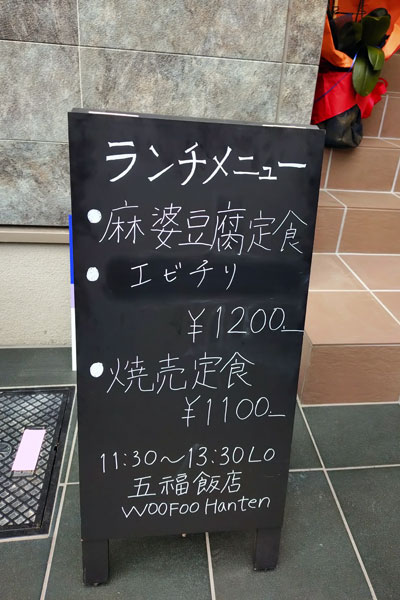 ランチメニュー
●麻婆豆腐定食
●エビチリ
¥1200.—
●焼売定食
¥1100—
11:30～13:30LO
五福飯店
WOOFOO Hanten